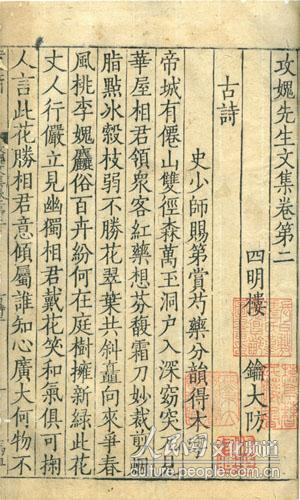 攻媿先生文集卷第二
四明樓 鑰大防
古詩
史少師賜第賞芍藥分韻得木
帝城有僊山雙徑森萬玉洞户入深窈突兀
華屋相君領衆客紅藥想芬馥霜刀妙裁剪
脂點冰縠枝弱不勝花翠葉共斜矗向來爭春
風桃李媿麤俗百卉紛何在庭樹擁新緑此花
丈人行儼立見幽獨相君戴花笑和氣俱可掬
人言此花勝相君意傾屬誰知心廣大何物不
人民网
culture.people.com.cn